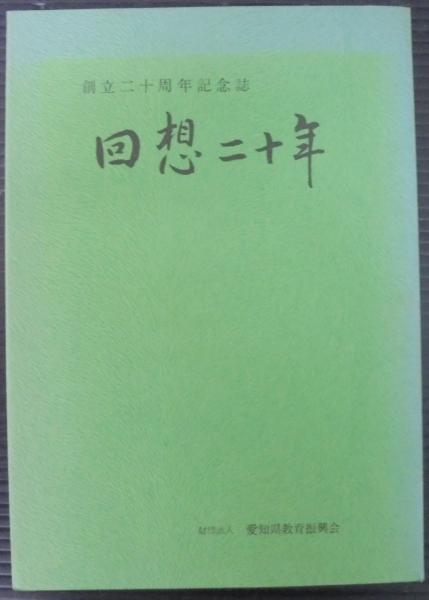 創立二十周年記念誌
回想二十年
財団法人 愛知県教育振興会